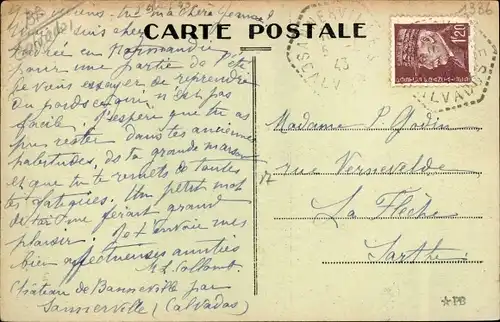 CARTE POSTALE
1386
1F20
43
CALVADOS
ma chère
Je suis chez
Andrée en Normandie
pour une partie de l'été
je viens essayer de reprendre
du poids ce qui n'est pas
facile. J'espère que tu as
pu rester dans tes anciennes
habitudes, ds ta grande maison
et que tu te remets de toutes
tes fatigues. Un petit mot
de toi me ferait grand
plaisir. Je t'envoie mes
bien affectueuses amitiés
M.L. Collomb
Château de Banneville par
Sannerville (Calvados)
Madame P. Gadin
rue Vernevelde
17
La Flèche
Sarthe
PB